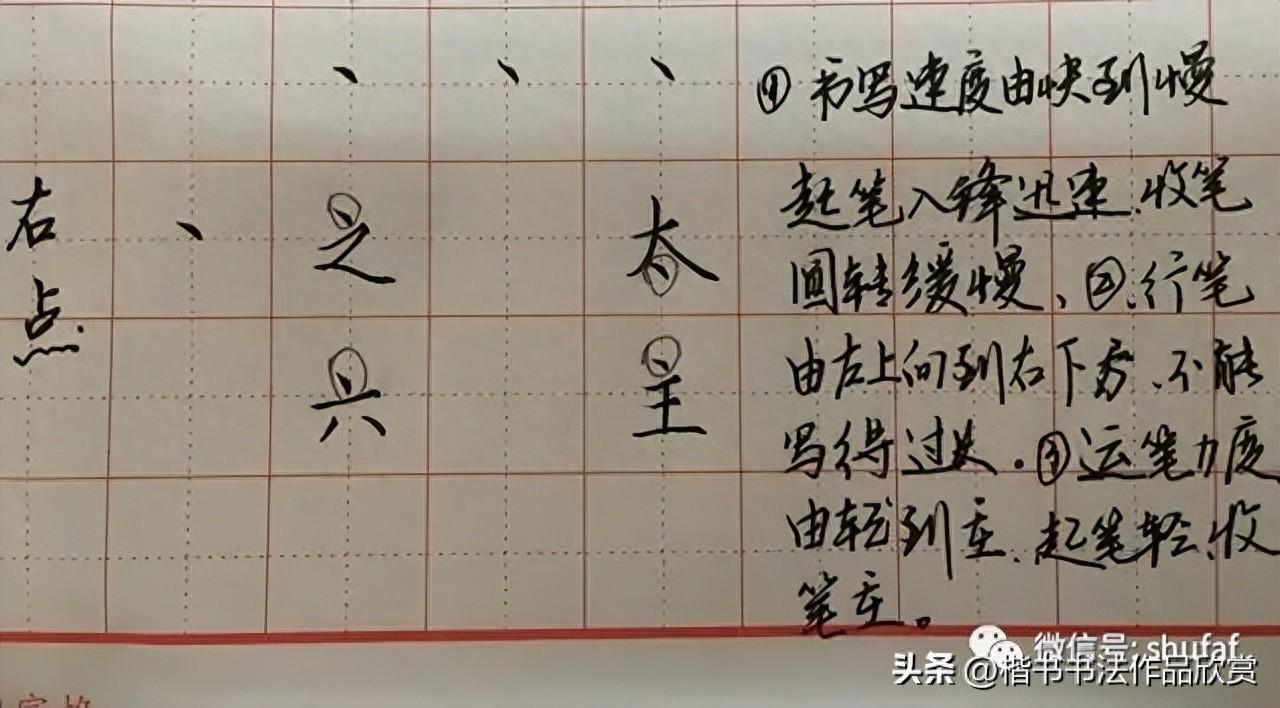 右点.
之
兴
太
主
① 书写速度由快到慢
起笔入锋迅速、收笔
回转缓慢、②、行笔
由左上向到右下方、不能
写得过 。③运笔力度
由轻到重、起笔轻、收
笔重。
微信号: shufaf
头条 @楷书书法作品欣赏